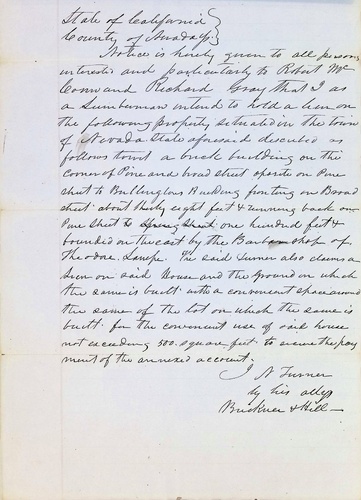 State of California }
County of Nevada } ss.
Notice is hereby given to all persons
interested and particularly to Robert Mc
Conn and Richard Gray that I as
a Lumberman intend to hold a lien on
the following property situated in the town
of Nevada State aforesaid described as
follows towit a brick building on the
corner of Pine and broad street oposite on Pine
street to Bullingtons Building fronting on Broad
street about thirty eight feet & running back on
Pine Street to Spring Street one hundred feet &
bounded on the east by the Barbar shop of
Theodac. Lampe. The said Turner also claims a
Lien on said House and the Ground on which
the same is built with a convenient space around
the same of the lot on which the same is
built for the convenient use of said house
not exceeding 500 square feet to secure the pay
ment of the annexed account.
J N Turner
by his attys
Buckner & Hill